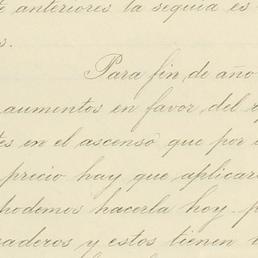 anteriores la sequia es
s.
Para fin de año
aumentos en favor del
en el ascenso que por
precio hay que aplicar
podemos hacerla hoy p
aderos y estos tienen